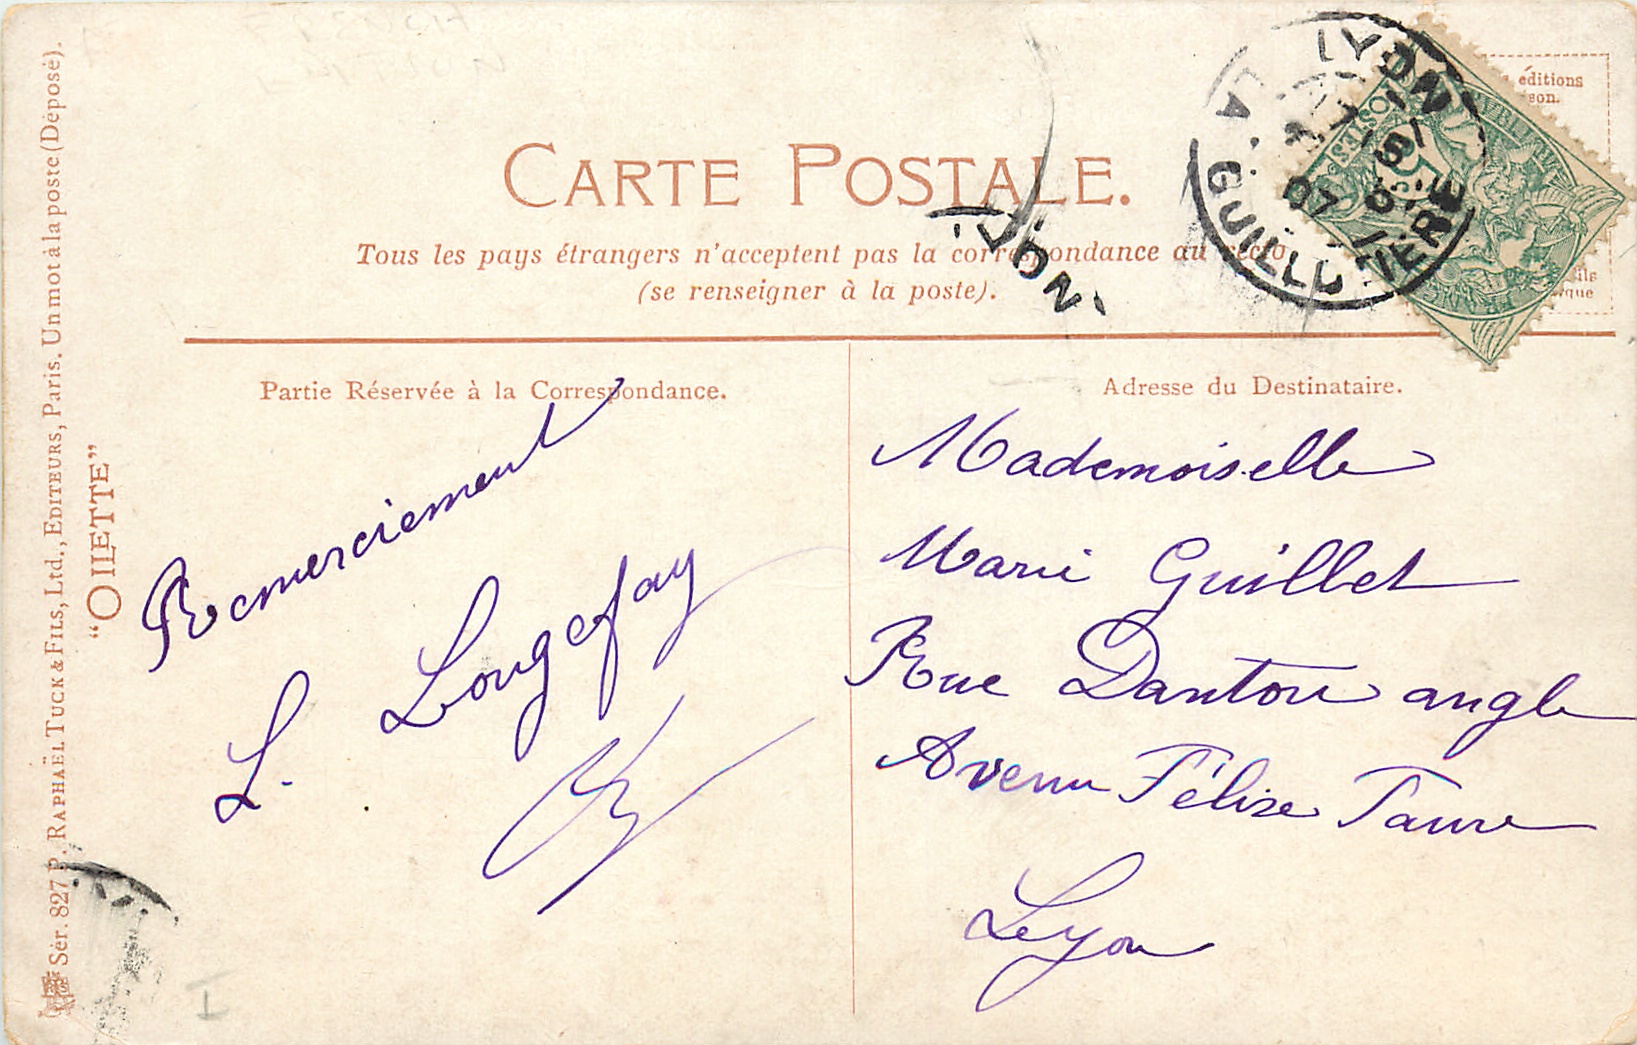 CARTE POSTALE.
Tous les pays étrangers n'acceptent pas la correspondance au recto
(se renseigner à la poste).
Partie Réservée à la Correspondance.
Remerciement
L. Longefay
Adresse du Destinataire.
Mademoiselle
Marie Guillet
Rue Danton angle
Avenu Félixe Faure
Lyon
LYON
LA GUILLOTIERE
07
éditions
LYON
"OILETTE"
Sér. 827 P. RAPHAËL TUCK & FILS, Ltd., EDITEURS, Paris. Un mot à la poste (Déposé).
I